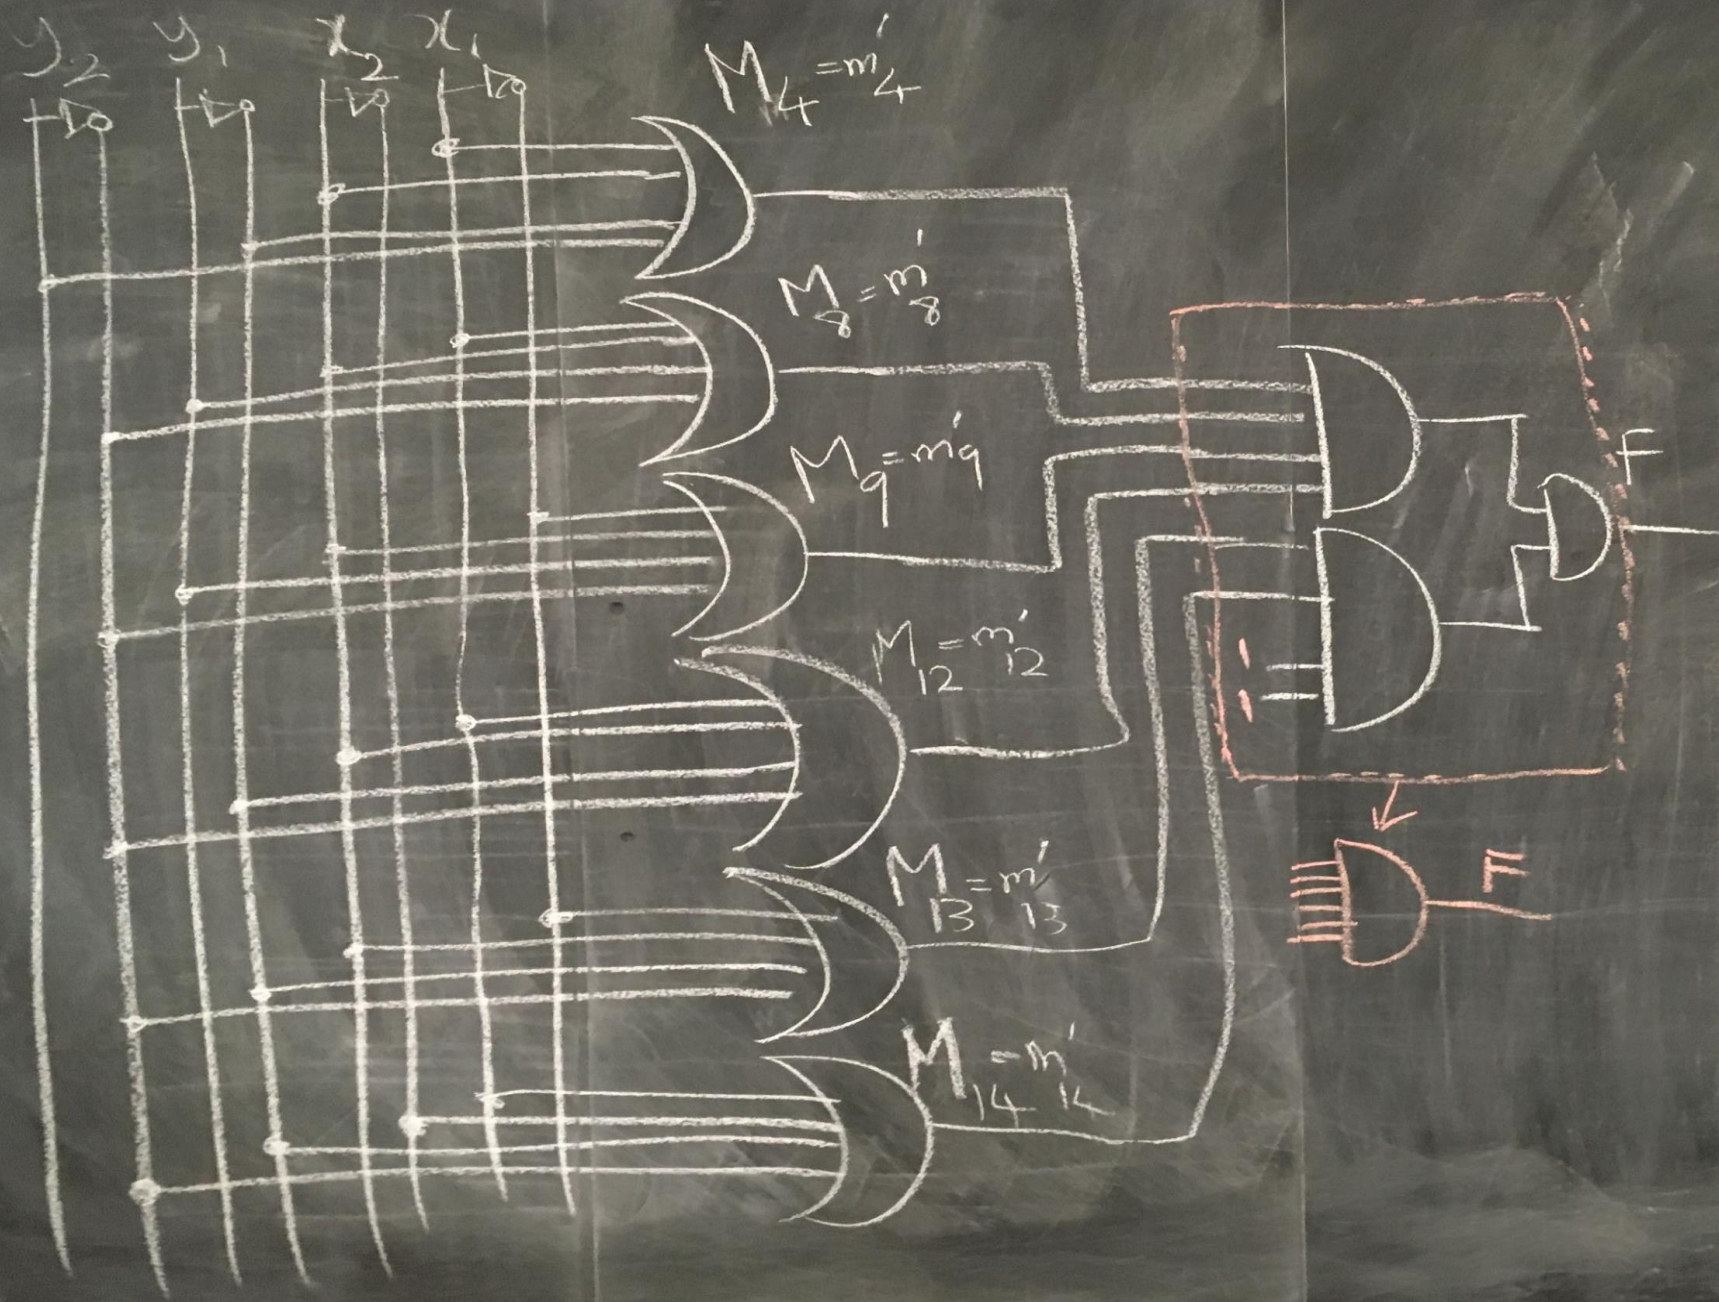 y₂ y₁ x₂ x₁
M₄ = m₄'
M₈ = m₈'
M₉ = m₉'
F
M₁₂ = m₁₂'
1
1
M₁₃ = m₁₃'
F
M₁₄ = m₁₄'